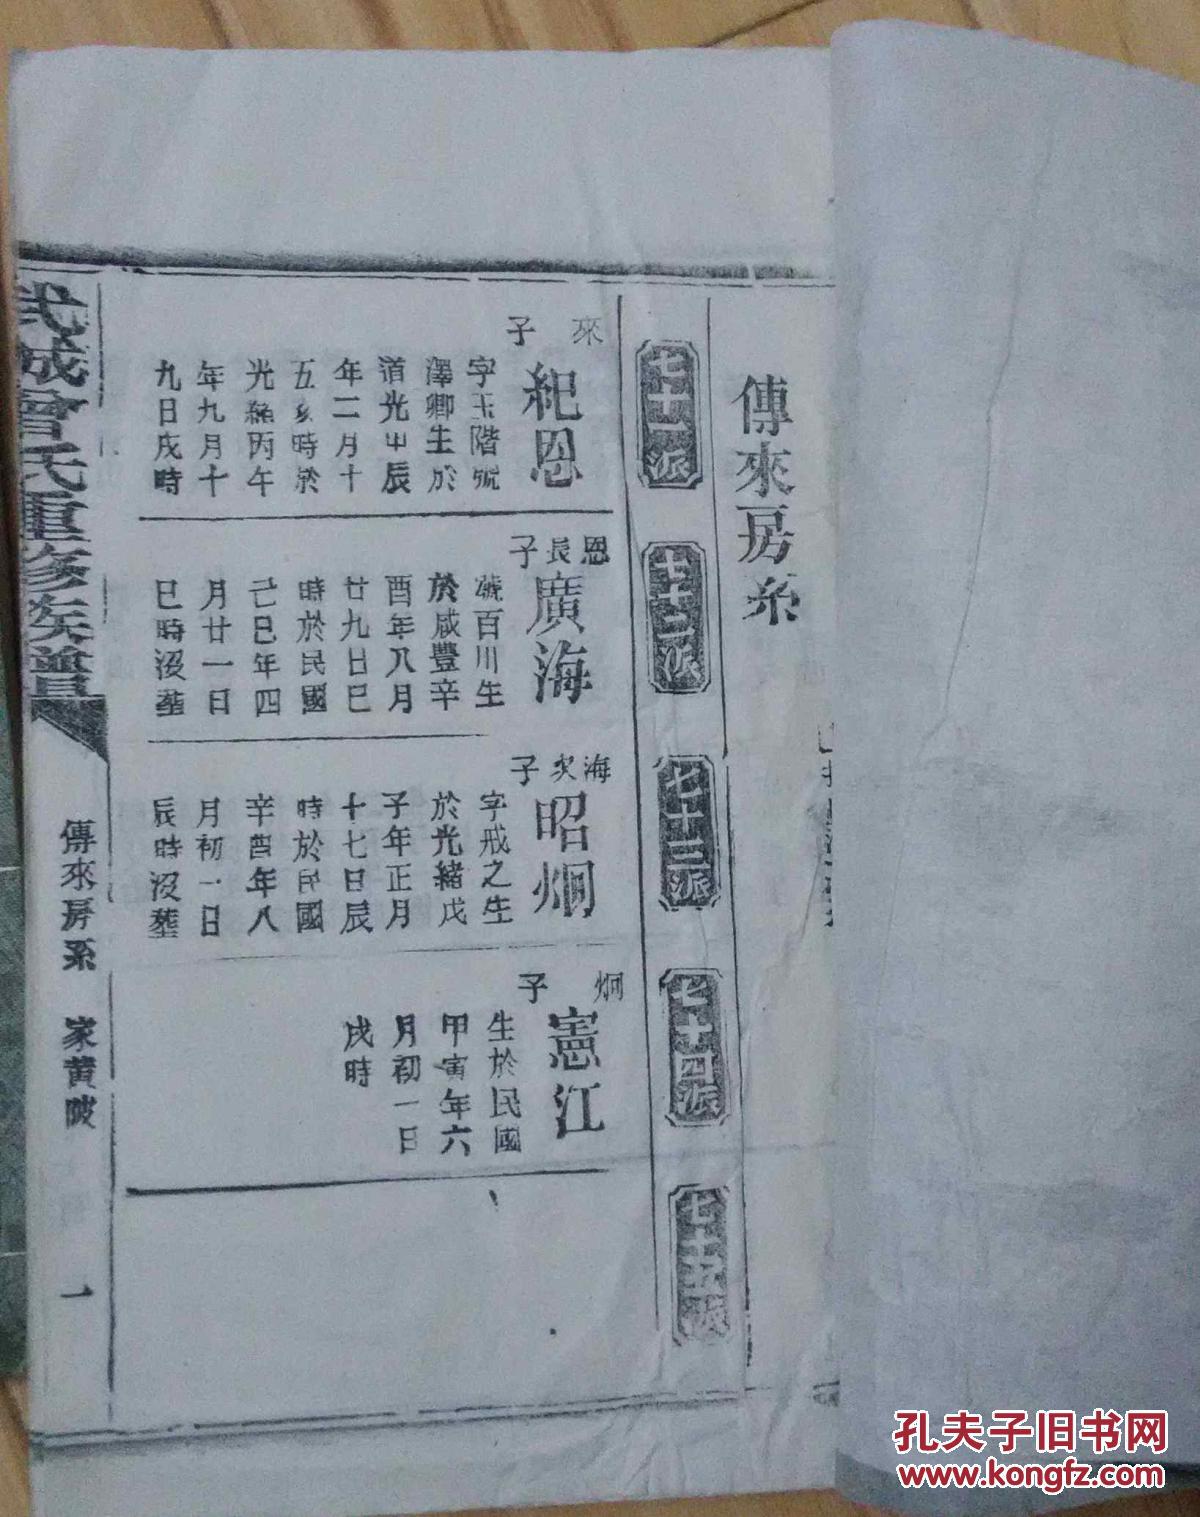 傳來房系
七十一派
七十二派
七十三派
七十四派
七十五派
來子
紀恩
字玉階號
澤卿生於
道光甲辰
年二月十
五亥時於
光緒丙午
年九月十
九日戌時
恩長子
廣海
號百川生
於咸豐辛
酉年八月
廿九日巳
時於民國
己巳年四
月廿一日
巳時沒塟
海次子
昭炯
字戒之生
於光緒戊
子年正月
十七日辰
時於民國
辛酉年八
月初一日
辰時沒塟
炯子
憲江
生於民國
甲寅年六
月初一日
戌時
武城曾氏重修族譜
傳來房系 家黄陂
一
孔夫子旧书网
www.kongfz.com